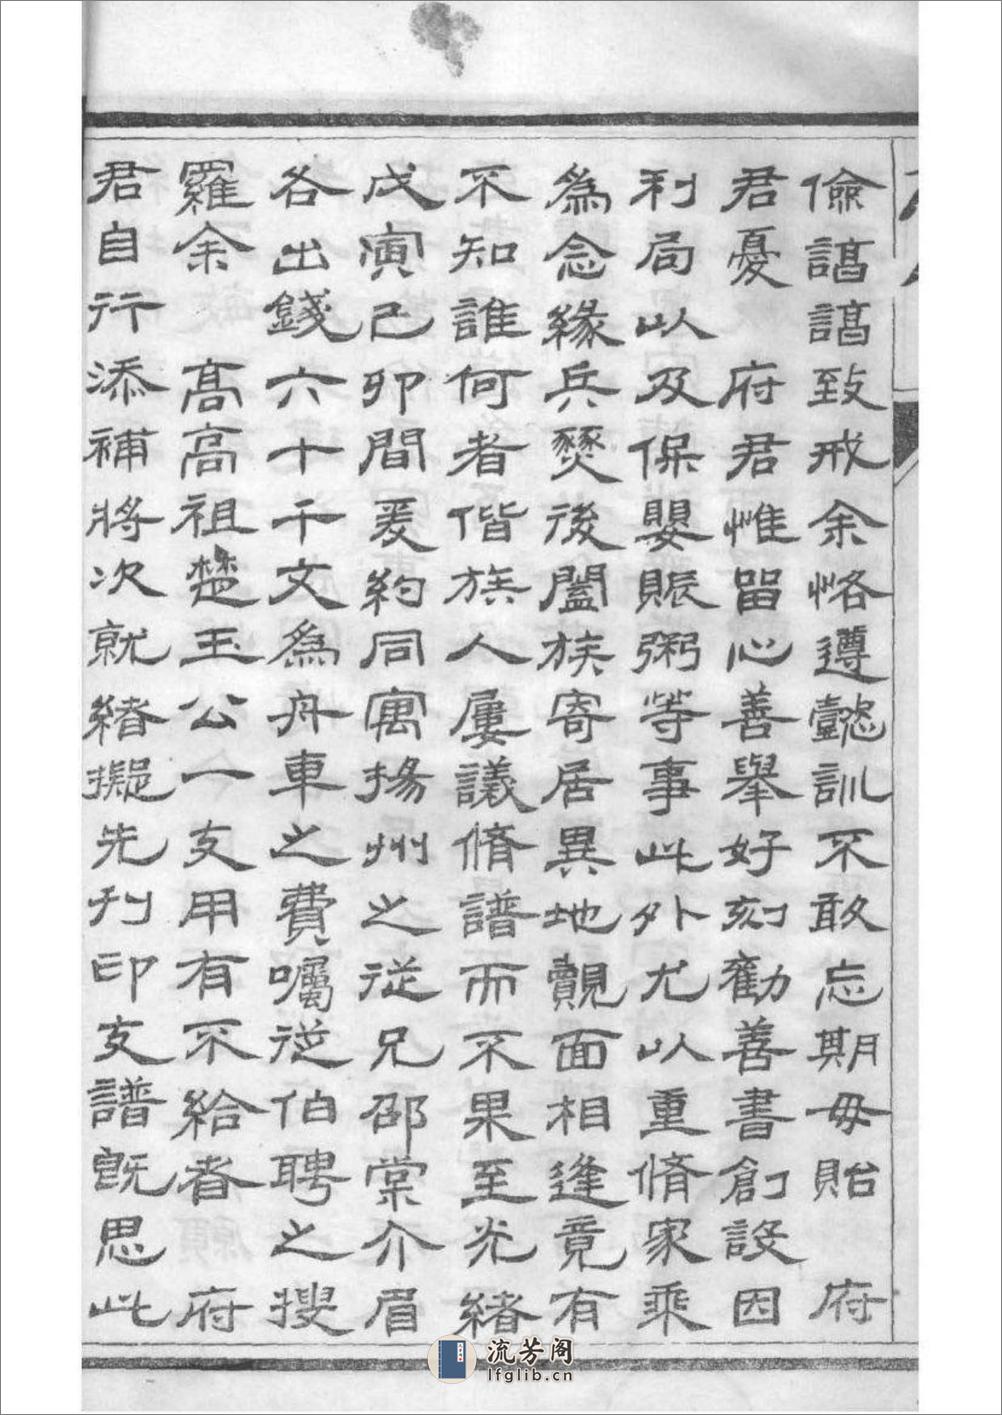 儉謞謞致戒余恪遵懿訓不敢忘期毋貽　府
君憂　府君惟畱心善舉好刻勸善書創設因
利局以及保嬰賑粥等事此外尤以重脩家乘
為念緣兵燹後闔族寄居異地覿面相逢竟有
不知誰何者偕族人屢議脩譜而不果至光緒
戊寅己卯間爰約同寓揚州之從兄邵棠介眉
各出錢六十千文為舟車之費囑從伯聘之搜
羅余　高高祖楚玉公一支用有不給者　府
君自行添補將次就緒擬先刊印支譜旣思此
流芳阁
lfglib.cn